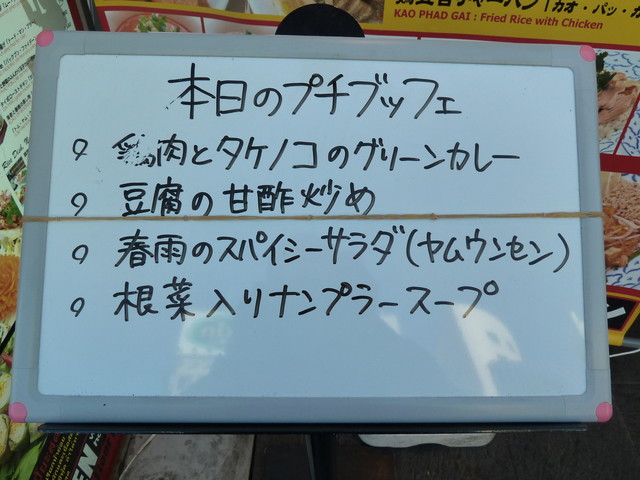 鶏立古チャーハン「カオ・パッ・ガ
KAO PHAD GAI : Fried Rice with Chicken
本日のプチブッフェ
鶏肉とタケノコのグリーンカレー
豆腐の甘酢炒め
春雨のスパイシーサラダ(ヤムウンセン)
根菜入りナンプラースープ